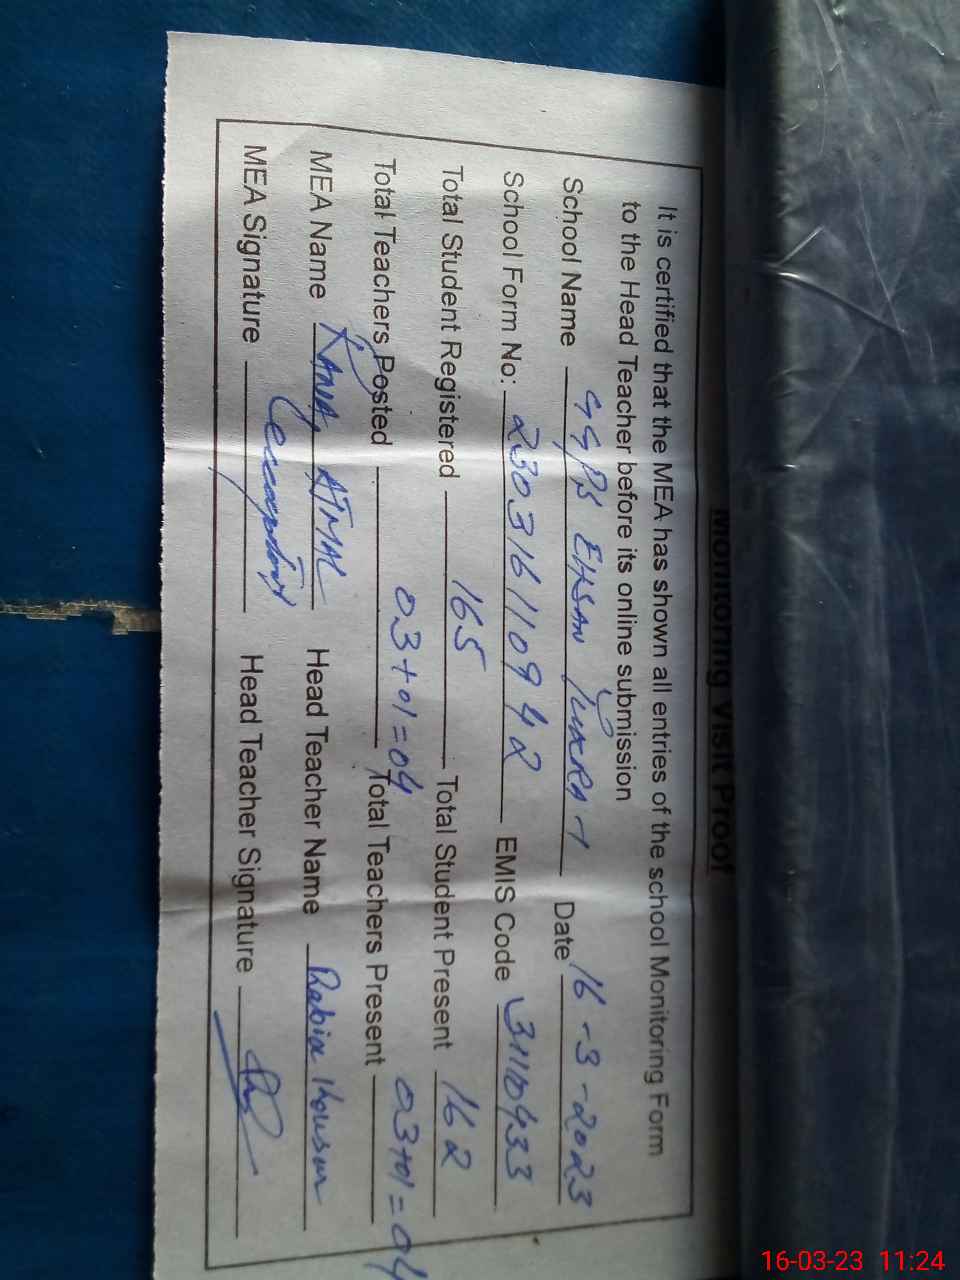 Monitoring Visit Proof
It is certified that the MEA has shown all entries of the school Monitoring Form
to the Head Teacher before its online submission
School Name GGPS EHSAN Date 16-3-2023
School Form No: 2303161109 42 EMIS Code 31110433
Total Student Registered 165 Total Student Present 162
Total Teachers Posted 03+01=04 Total Teachers Present 03+01=04
MEA Name RANA AJMAL Head Teacher Name Rabia Kousar
MEA Signature Head Teacher Signature
16-03-23 11:24